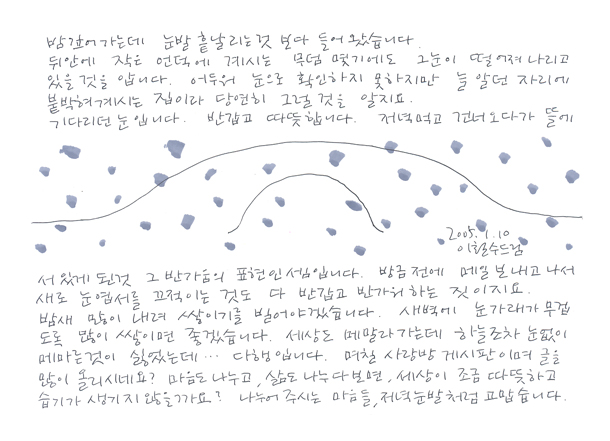 밤 깊어 가는데 눈발 흩날리는 것 보다 들어 왔습니다.
뒤안에 작은 언덕에 계시는 무덤 몇기에도 그 눈이 떨어져 나리고
있을 것을 압니다. 어두워 눈으로 확인하지 못하지만 늘 알던 자리에
붙박혀 계시는 집이라 당연히 그럴 것을 알지요.
기다리던 눈입니다. 반갑고 따뜻합니다. 저녁먹고 건너오다가 뜰에
2005. 1. 10
이철수드림
서 있게 된것 그 반가움의 표현인 셈입니다. 방금 전에 메일 보내고 나서
새로 눈엽서를 끄적이는 것도 다 반갑고 반가워 하는 짓이지요.
밤새 많이 내려 쌓이기를 빌어야겠습니다. 새벽에 눈가래가 무겁
도록 많이 쌓이면 좋겠습니다. 세상도 메말라 가는데 하늘조차 눈없이
메마른것이 싫었는데… 다행입니다. 며칠 사랑방 게시판이며 글을
많이 올리시네요? 마음도 나누고, 삶도 나누다 보면, 세상이 조금 따뜻하고
습기가 생기지 않을가요? 나누어 주시는 마음들, 저녁눈발처럼 고맙습니다.